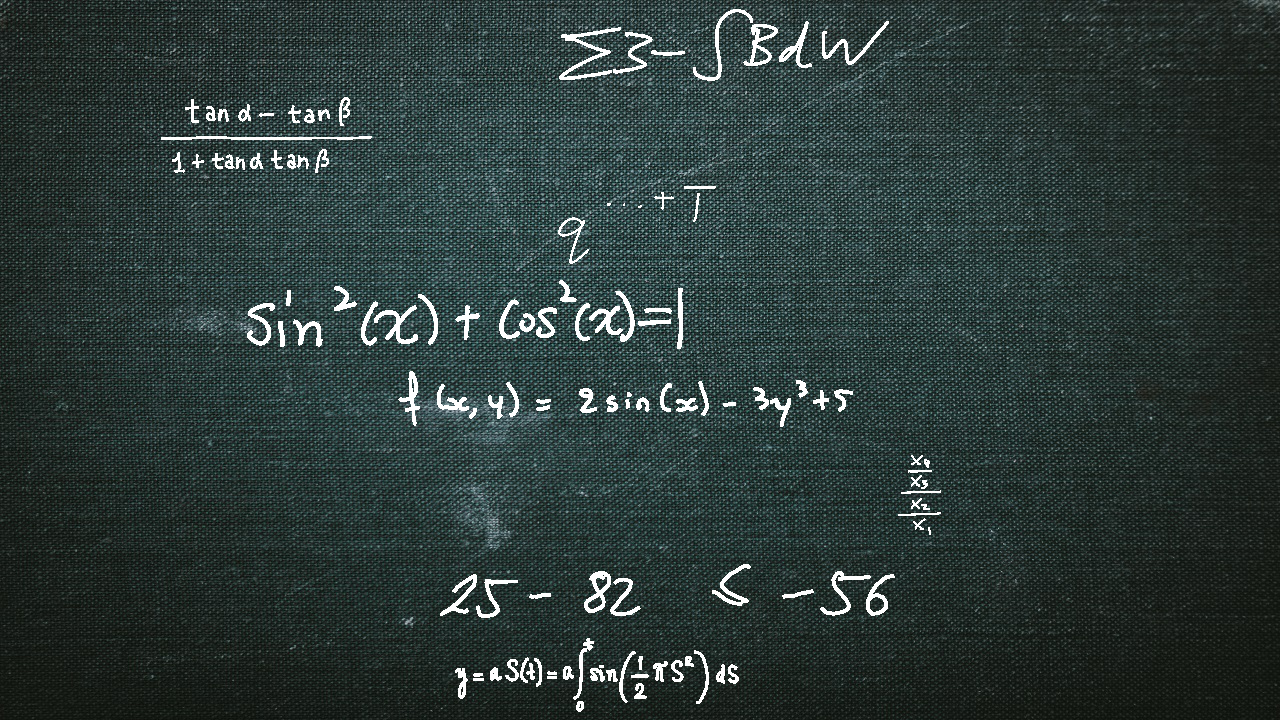 ∑ξ - ∫BdW
tan α - tan β
1 + tan α tan β
q^{...+T̅}
sin²(x) + cos²(x) = 1
f(x,y) = 2 sin(x) - 3y³ + 5
x₄
x₃
x₂
x₁
25 - 82 ≤ -56
y = a S(t) = a ∫₀ᵗ sin(½ πS²) dS